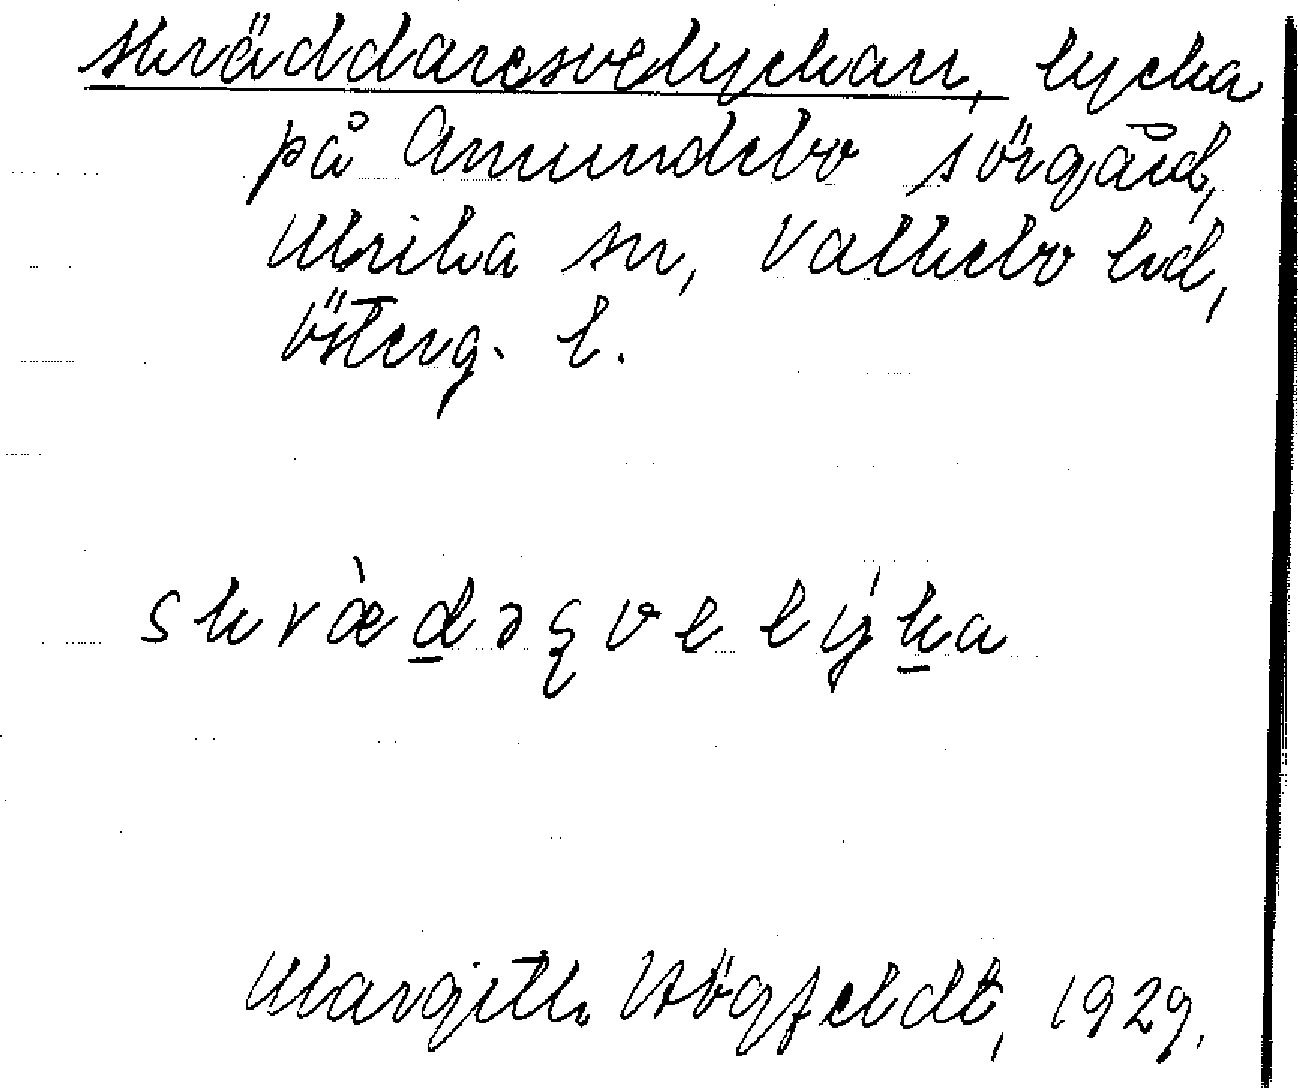 Skräddaresvelyckan, lycka
på Amundebo Sörgård,
Ulrika sn, Valkebo hd,
Österg. l.
skrædəʂvelýka
Margith Högfeldt, 1929.